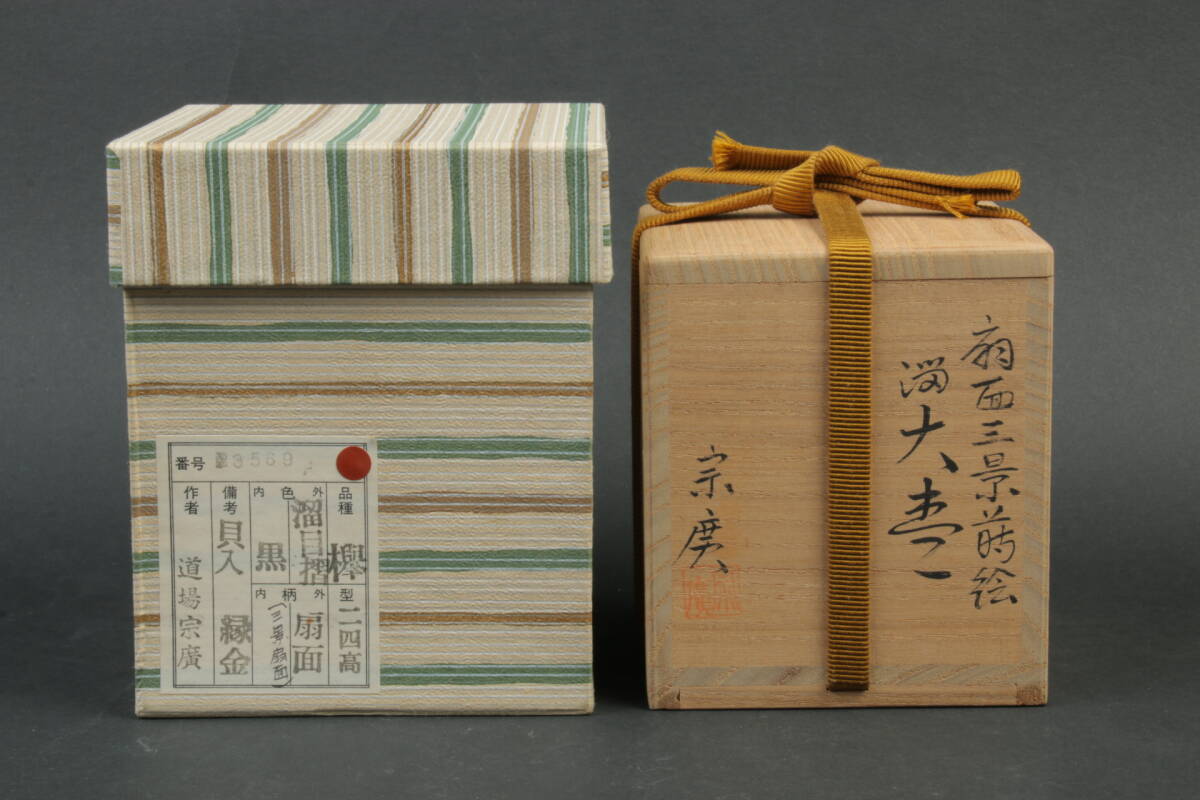 番号 3569
品種 欅
外 色 内
溜目摺
黒
備考 貝入 縁金
作者 道場宗廣
型 二四高
外 柄 内
扇面
(三景扇面)
扇面三景蒔絵
溜大棗
宗廣